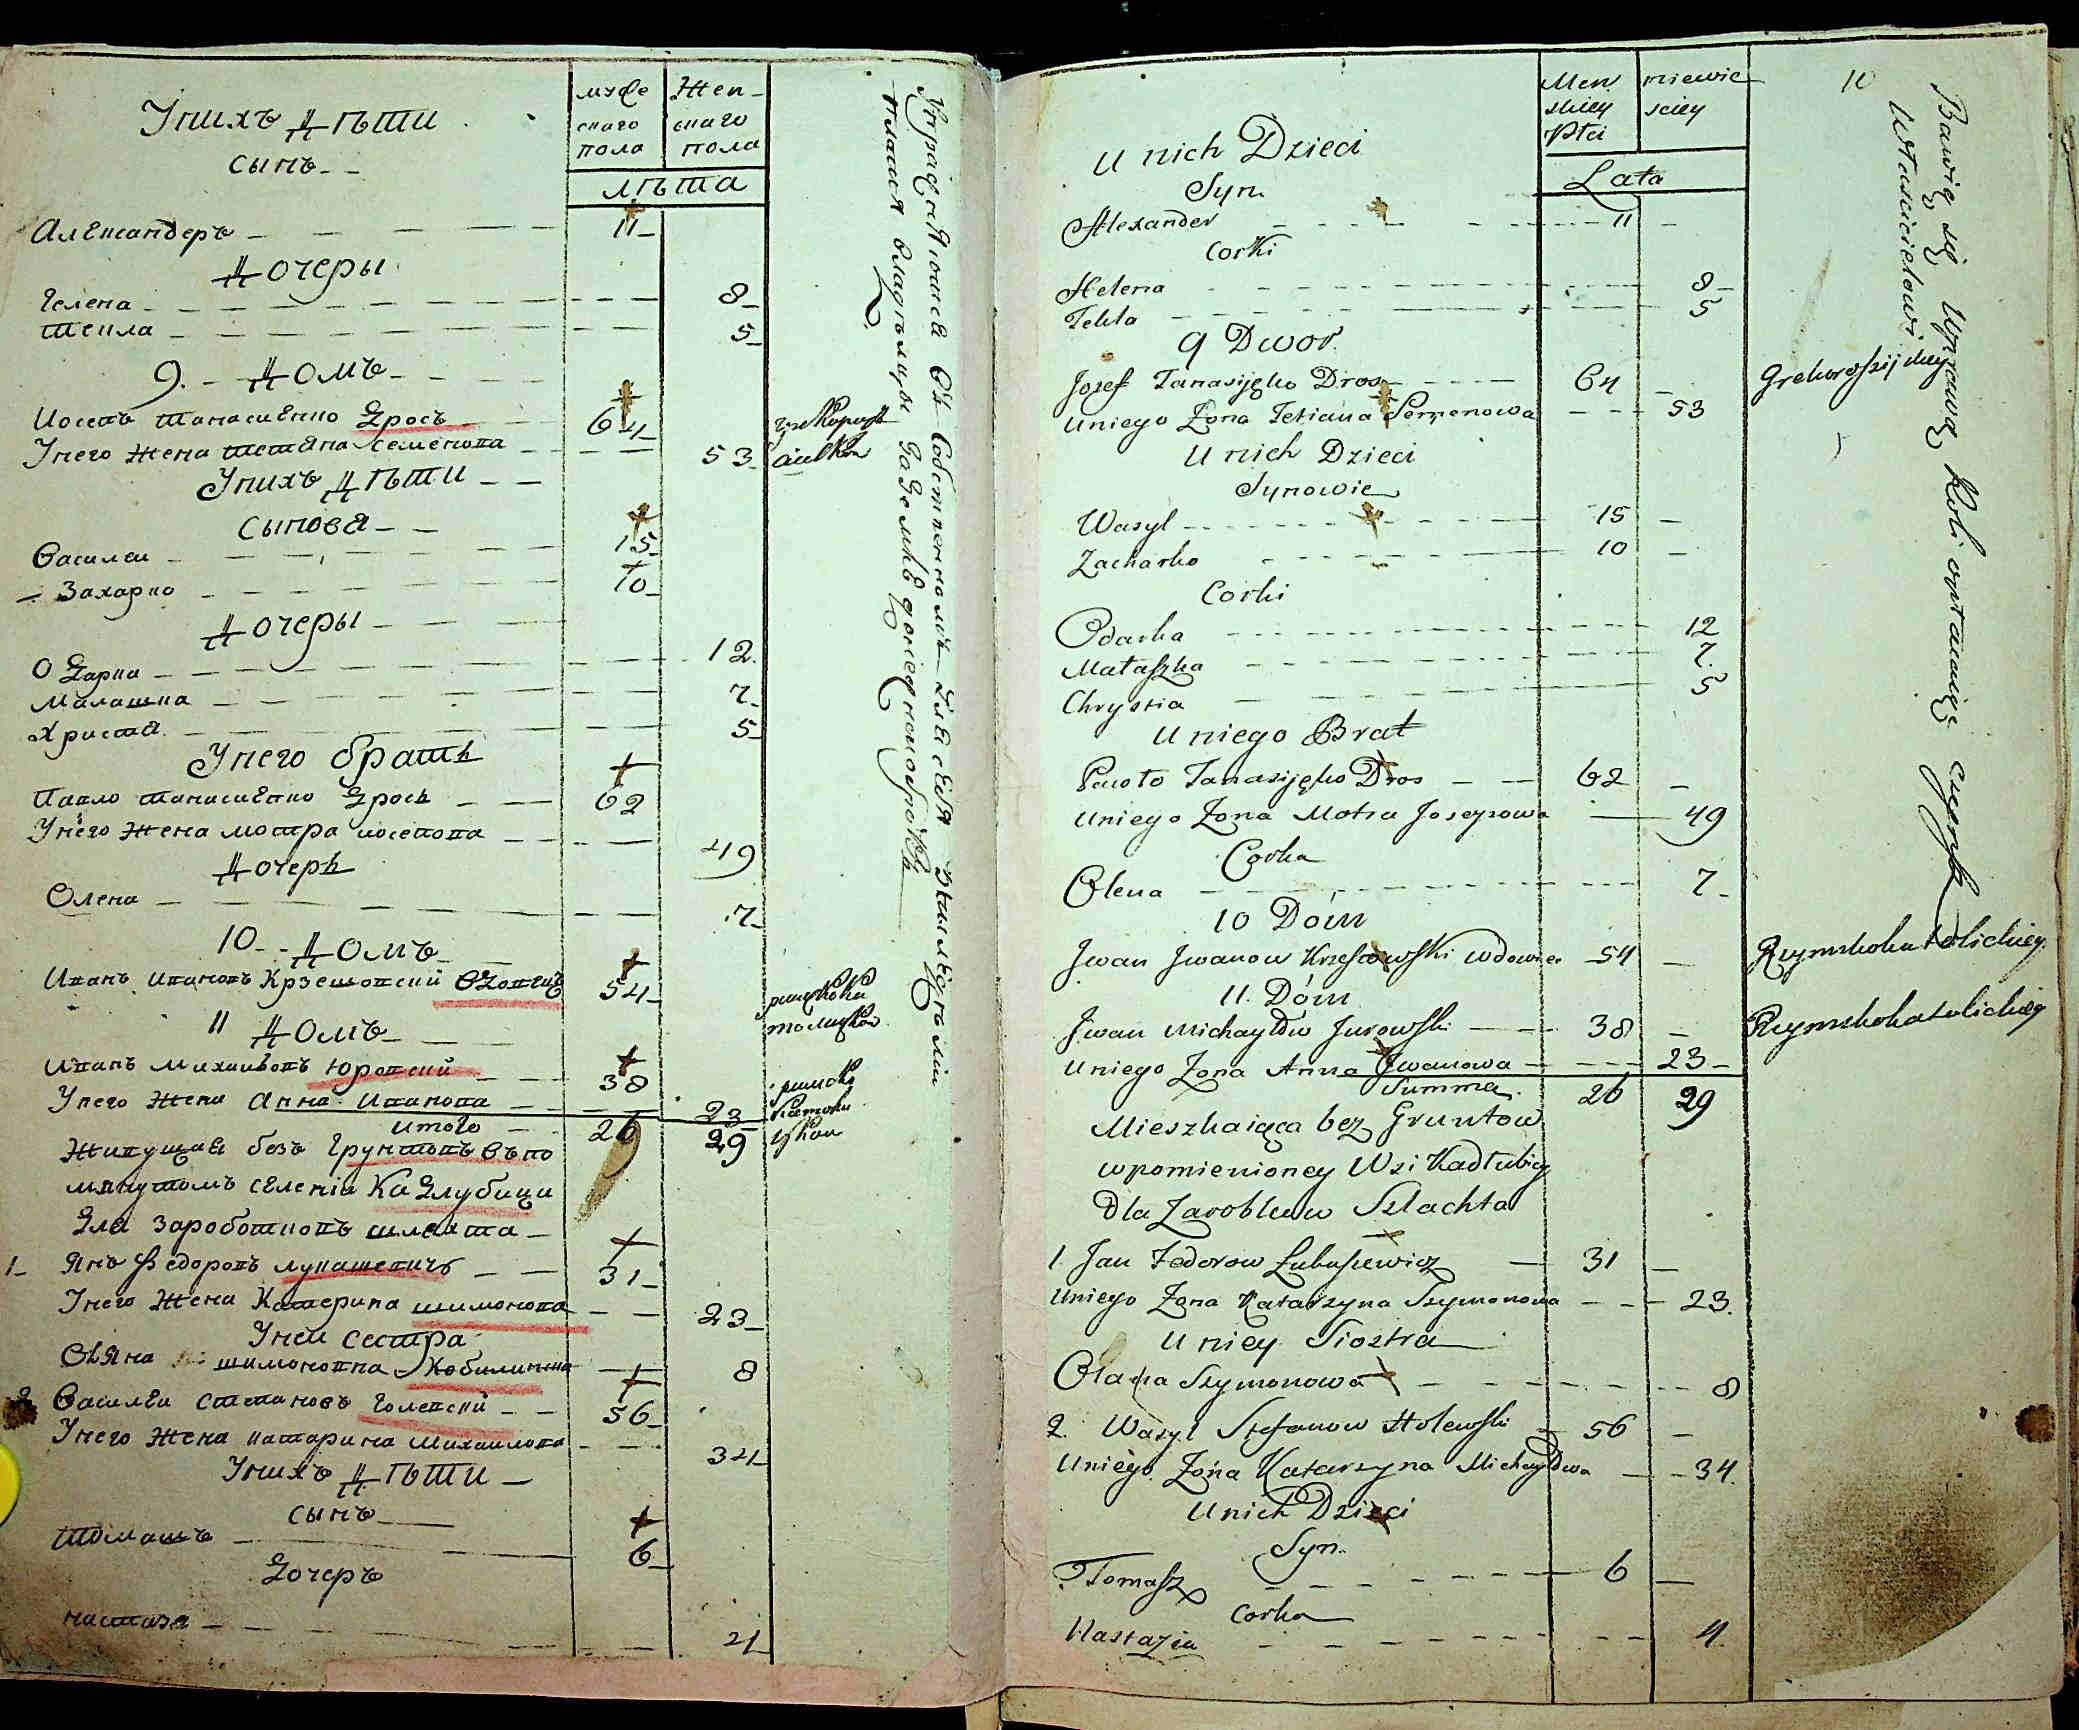 У нихъ дѣти
сынъ
мужескаго пола
женскаго пола
лѣта
Александеръ 11
дочеры
Гелена 8
Текла 5
9. домъ
Иосепъ Танасиенко Дросъ 64
У него жена Тетяна Семенова 53
У нихъ дѣти
сынова
Василеи 15
Захарко 10
дочеры
Одарка 12
Малашка 7
Христя 5
У него братъ
Павло Танасиенко Дросъ 62
У него жена Мотра Иосепова 49
дочеръ
Олена 7
10 домъ
Иванъ Ивановъ Крзешовский вдовецъ 54
11 домъ
Иванъ Михаиловъ Юровский 38
У него жена Анна Иванова 23
Итого 26 29
Живущия безъ грунтовъ въ по
мянутомъ селении Кадлубици
для зароботковъ шляхта
1 Янъ Федоровъ Лукашевичъ 31
У него жена Катерина Шимонова 23
У неи сестра
Шимоновна Кобилинская 8
2 Василеи Степановъ Голевский 56
У него жена Катарина Михаилова 34
У нихъ дѣти
сынъ
Томашъ 6
дочеръ
Настазя 4
U nich Dzieci
Syn
Męskiey Płci
niewiesciey
Lata
10
Alexander 11
Corki
Helena 8
Tekla 5
9 Dwor
Josef Tanasijęko Dros 64 Grekorossijskiey
U niego Żona Tetiana Semenowa 53
U nich Dzieci
Synowie
Wasyl 15
Zacharko 10
Corki
Odarka 12
Małaszka 7
Chrystia 5
U niego Brat
Pawło Tanasijęko Dros 62
U niego Żona Motra Josepowa 49
Corka
Olena 7
10 Dóm
Jwan Jwanow Krzeszowski wdowiec 54 Rzymskokatolickiey
11. Dóm
Jwan Michayłow Jurowski 38 Rzymskokatolickiey
U niego Żona Anna Jwanowa 23
Summa 26 29
Mieszkaiąca bez Gruntow
wpomienioney Wsi Kadłubicy
Dla Zarobkow Szlachta
1 Jan Fedorow Łukaszewicz 31
U niego Żona Katarzyna Szymonowa 23
U niey Siostra
Szymonowa 8
2. Wasyl Stefanow Holewski 56
U niego Żona Katarzyna Michayłowa 34
U nich Dzieci
Syn
Tomasz 6
Corka
Nastazia 4
Bawią się Uprawą Roli opłacaiąc czynsz
Właścicielowi